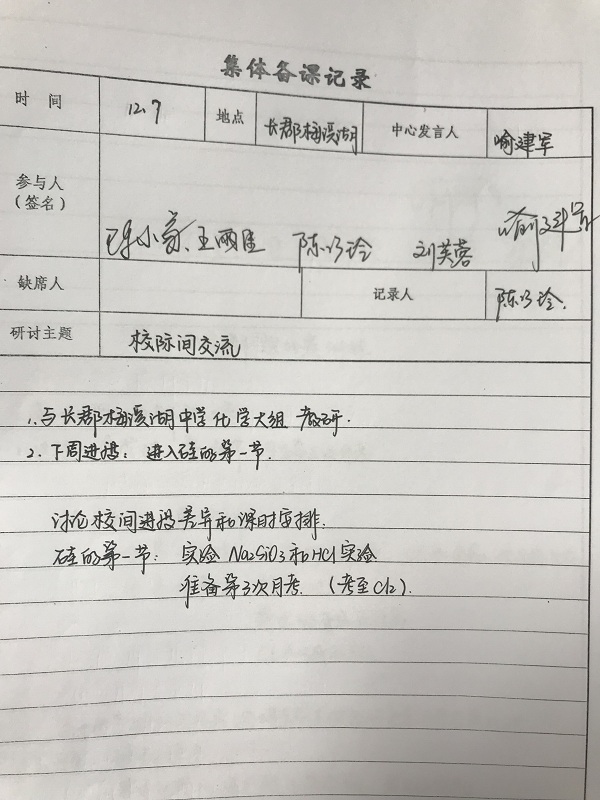 集体备课记录
时 间 12.7 地点 长郡梅溪湖 中心发言人 喻建军
参与人
(签名)
王丽 陈巧玲 刘芙蓉 喻建军
缺席人 记录人 陈巧玲.
研讨主题 校际间交流
1. 与长郡梅溪湖中学化学大组 教研.
2. 下周进程: 进入硅的第一节.
讨论校间进程差异和课时安排.
硅的第一节: 实验 Na2SiO3和HCl实验
准备第3次月考. (考至Cl2).